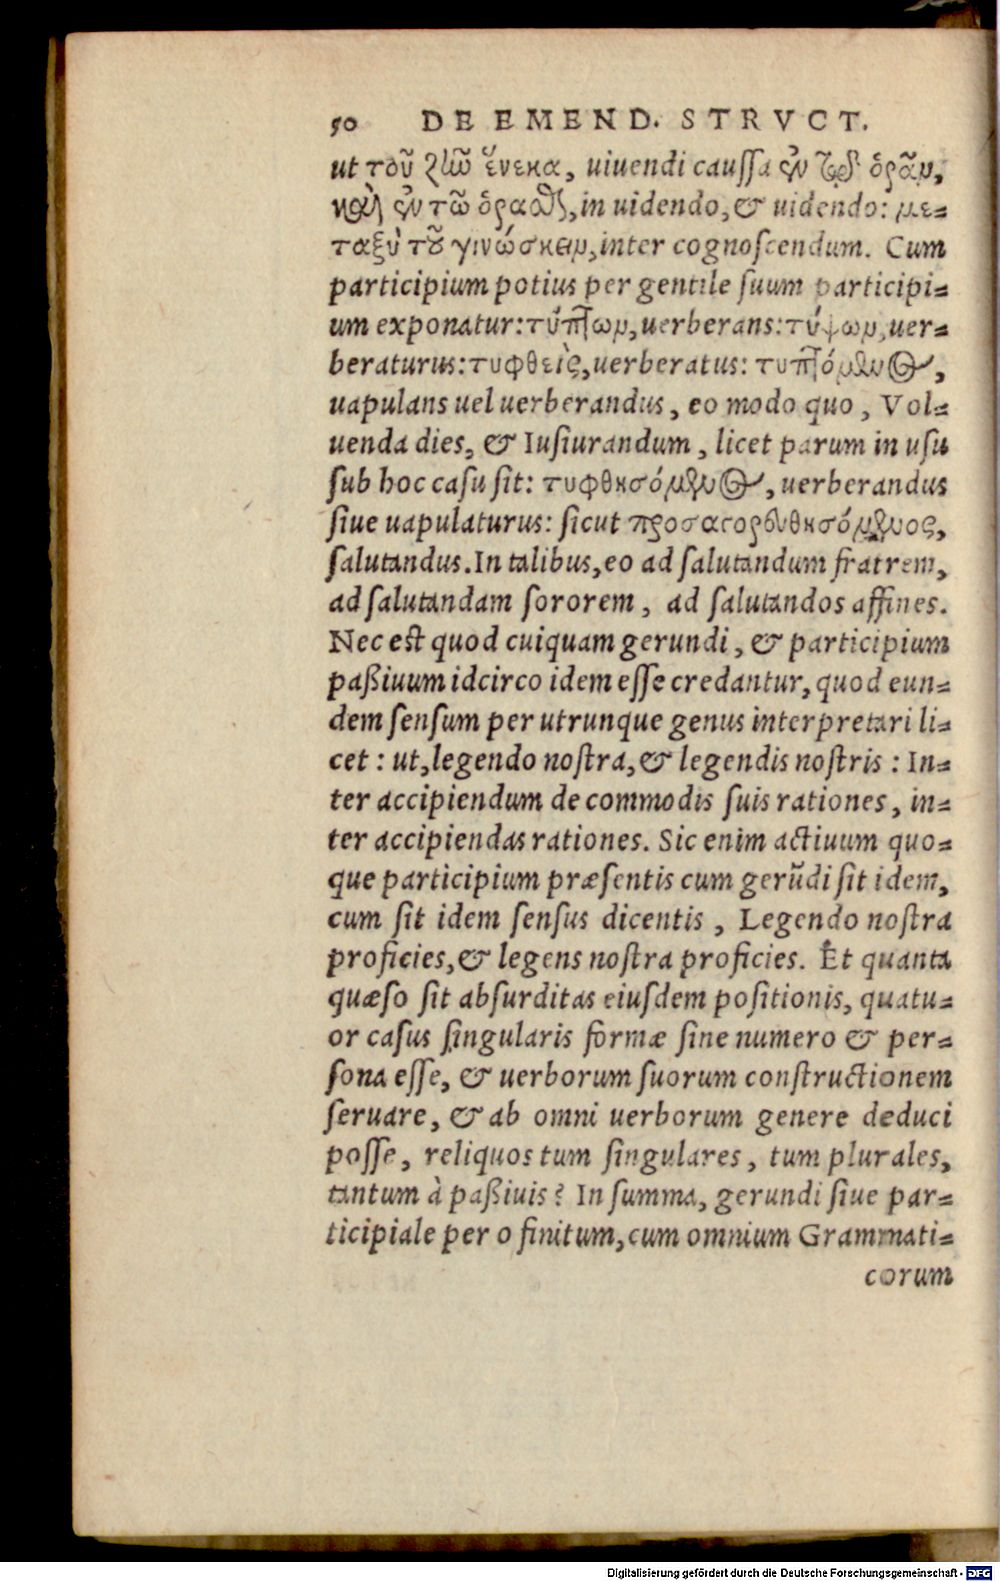 50 DE EMEND. STRVCT.
ut τοῦ ζῆν ἕνεκα, uiuendi caussa ἐν τῷ ὁρᾶν,
καὶ ἐν τῶ ὁρᾶσθαι, in uidendo, & uidendo: με-
ταξὺ τοῦ γινώσκειν, inter cognoscendum. Cum
participium potius per gentile suum participi-
um exponatur: τύπτων, uerberans: τύψων, uer-
beraturus: τυφθεὶς, uerberatus: τυπτόμενος,
uapulans uel uerberandus, eo modo quo, Vol-
uenda dies, & Iusiurandum, licet parum in usu
sub hoc casu sit: τυφθησόμενος, uerberandus
siue uapulaturus: sicut προσαγορευθησόμενος,
salutandus. In talibus, eo ad salutandum fratrem,
ad salutandam sororem, ad salutandos affines.
Nec est quod cuiquam gerundi, & participium
paßiuum idcirco idem esse credantur, quod eun-
dem sensum per utrunque genus interpretari li-
cet: ut, legendo nostra, & legendis nostris: In-
ter accipiendum de commodis suis rationes, in-
ter accipiendas rationes. Sic enim actiuum quo-
que participium præsentis cum gerũdi sit idem,
cum sit idem sensus dicentis, Legendo nostra
proficies, & legens nostra proficies. Et quanta
quæso sit absurditas eiusdem positionis, quatu-
or casus singularis formæ sine numero & per-
sona esse, & uerborum suorum constructionem
seruare, & ab omni uerborum genere deduci
posse, reliquos tum singulares, tum plurales,
tantum à paßiuis? In summa, gerundi siue par-
ticipiale per o finitum, cum omnium Grammati-
corum
Digitalisierung gefördert durch die Deutsche Forschungsgemeinschaft - DFG